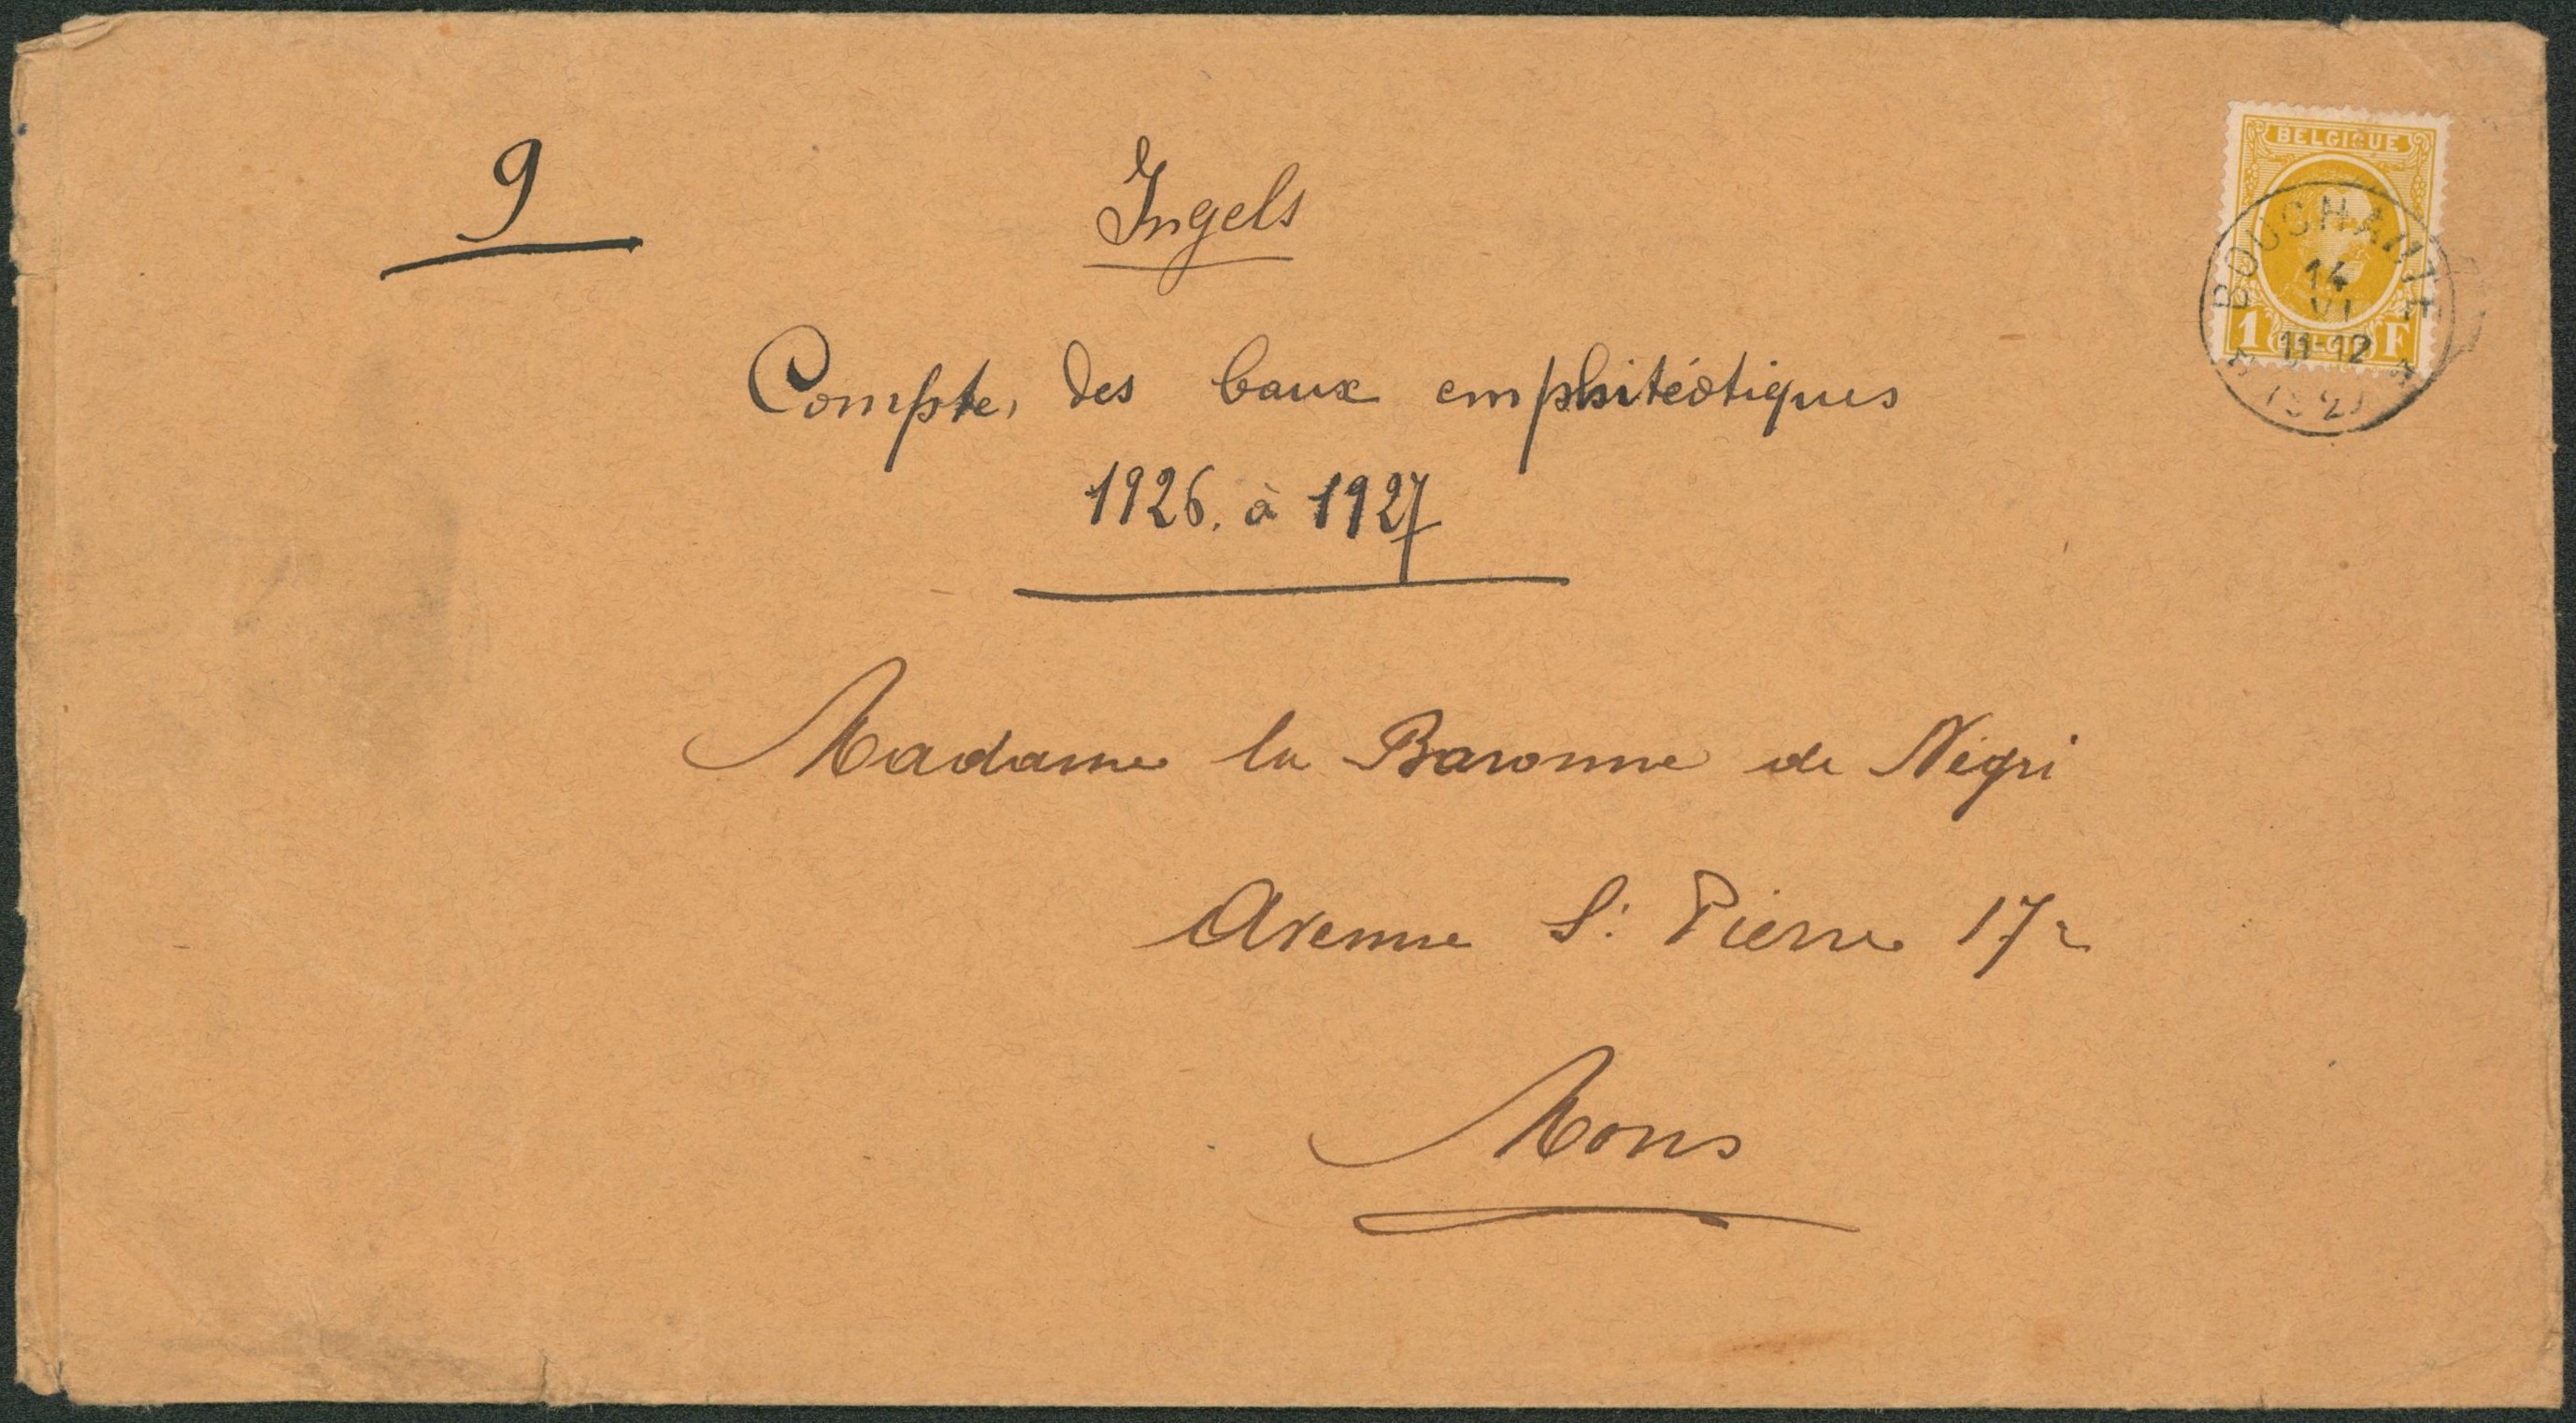 9
Ingels
Compte, des baux emphitéotiques
1926. à 1927
Madame la Baronne de Négri
Avenue St Pierre 17
Mons
BELGIQUE
1 F
BELGIË
14
VI
11-12